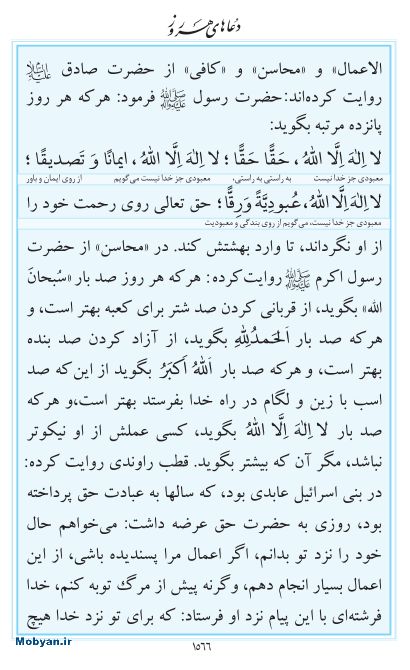 دعاهای هر روز
الاعمال» و «محاسن» و «کافی» از حضرت صادق علیه‌السلام
روایت کرده‌اند:حضرت رسول ﷺ فرمود: هرکه هر روز
پانزده مرتبه بگوید:
لا اِلٰهَ اِلَّا اللهُ ، حَقًّا حَقًّا ؛ لا اِلٰهَ اِلَّا اللهُ ، ایمانًا وَ تَصدیقًا ؛
معبودی جز خدا نیست به راستی به راستی، معبودی جز خدا نیست می‌گویم از روی ایمان و باور
لا اِلٰهَ اِلَّا اللهُ، عُبودِیَّةً وَرِقًّا؛ حق تعالی روی رحمت خود را
معبودی جز خدا نیست، می‌گویم از روی بندگی و معبودیت
از او نگرداند، تا وارد بهشتش کند. در «محاسن» از حضرت
رسول اکرم ﷺ روایت‌کرده: هرکه هر روز صد بار «سُبحانَ
الله» بگوید، از قربانی کردن صد شتر برای کعبه بهتر است، و
هرکه صد بار اَلحَمدُلِلّهِ بگوید، از آزاد کردن صد بنده
بهتر است، و هرکه صد بار اَللهُ اَکبَرُ بگوید از این‌که صد
اسب با زین و لگام در راه خدا بفرستد بهتر است،و هرکه
صد بار لا اِلٰهَ اِلَّا اللهُ بگوید، کسی عملش از او نیکوتر
نباشد، مگر آن که بیشتر بگوید. قطب راوندی روایت کرده:
در بنی اسرائیل عابدی بود، که سالها به عبادت حق پرداخته
بود، روزی به حضرت حق عرضه داشت: می‌خواهم حال
خود را نزد تو بدانم، اگر اعمال مرا پسندیده باشی، از این
اعمال بسیار انجام دهم، وگرنه پیش از مرگ توبه کنم، خدا
فرشته‌ای با این پیام نزد او فرستاد: که برای تو نزد خدا هیچ
۱۵۶۶
Mobyan.ir